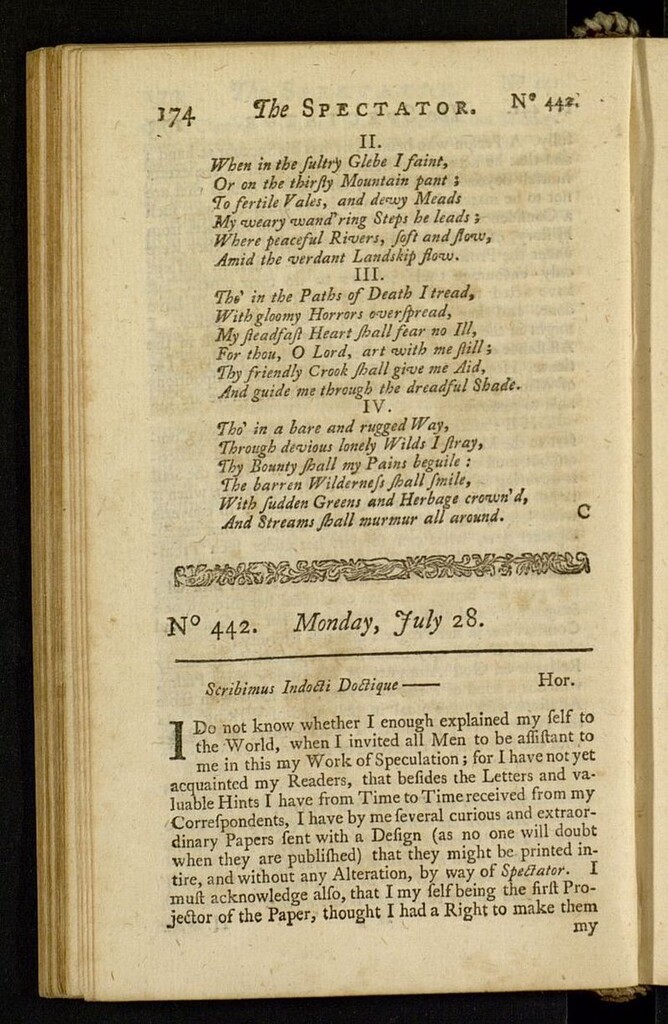 174 The SPECTATOR. No 442.
II.
When in the ſultry Glebe I faint,
Or on the thirſty Mountain pant;
To fertile Vales, and dewy Meads
My weary wand'ring Steps he leads;
Where peaceful Rivers, ſoft and ſlow,
Amid the verdant Landskip flow.
III.
Tho' in the Paths of Death I tread,
With gloomy Horrors overſpread,
My ſteadfaſt Heart ſhall fear no Ill,
For thou, O Lord, art with me ſtill;
Thy friendly Crook ſhall give me Aid,
And guide me through the dreadful Shade.
IV.
Tho' in a bare and rugged Way,
Through devious lonely Wilds I ſtray,
Thy Bounty ſhall my Pains beguile:
The barren Wilderneſs ſhall ſmile,
With ſudden Greens and Herbage crown'd,
And Streams ſhall murmur all around. C
No 442. Monday, July 28.
Scribimus Indocti Doctique —— Hor.
I Do not know whether I enough explained my ſelf to
the World, when I invited all Men to be aſſiſtant to
me in this my Work of Speculation; for I have not yet
acquainted my Readers, that beſides the Letters and va-
luable Hints I have from Time to Time received from my
Correſpondents, I have by me ſeveral curious and extraor-
dinary Papers ſent with a Deſign (as no one will doubt
when they are publiſhed) that they might be printed in-
tire, and without any Alteration, by way of Spectator. I
muſt acknowledge alſo, that I my ſelf being the firſt Pro-
jector of the Paper, thought I had a Right to make them
my